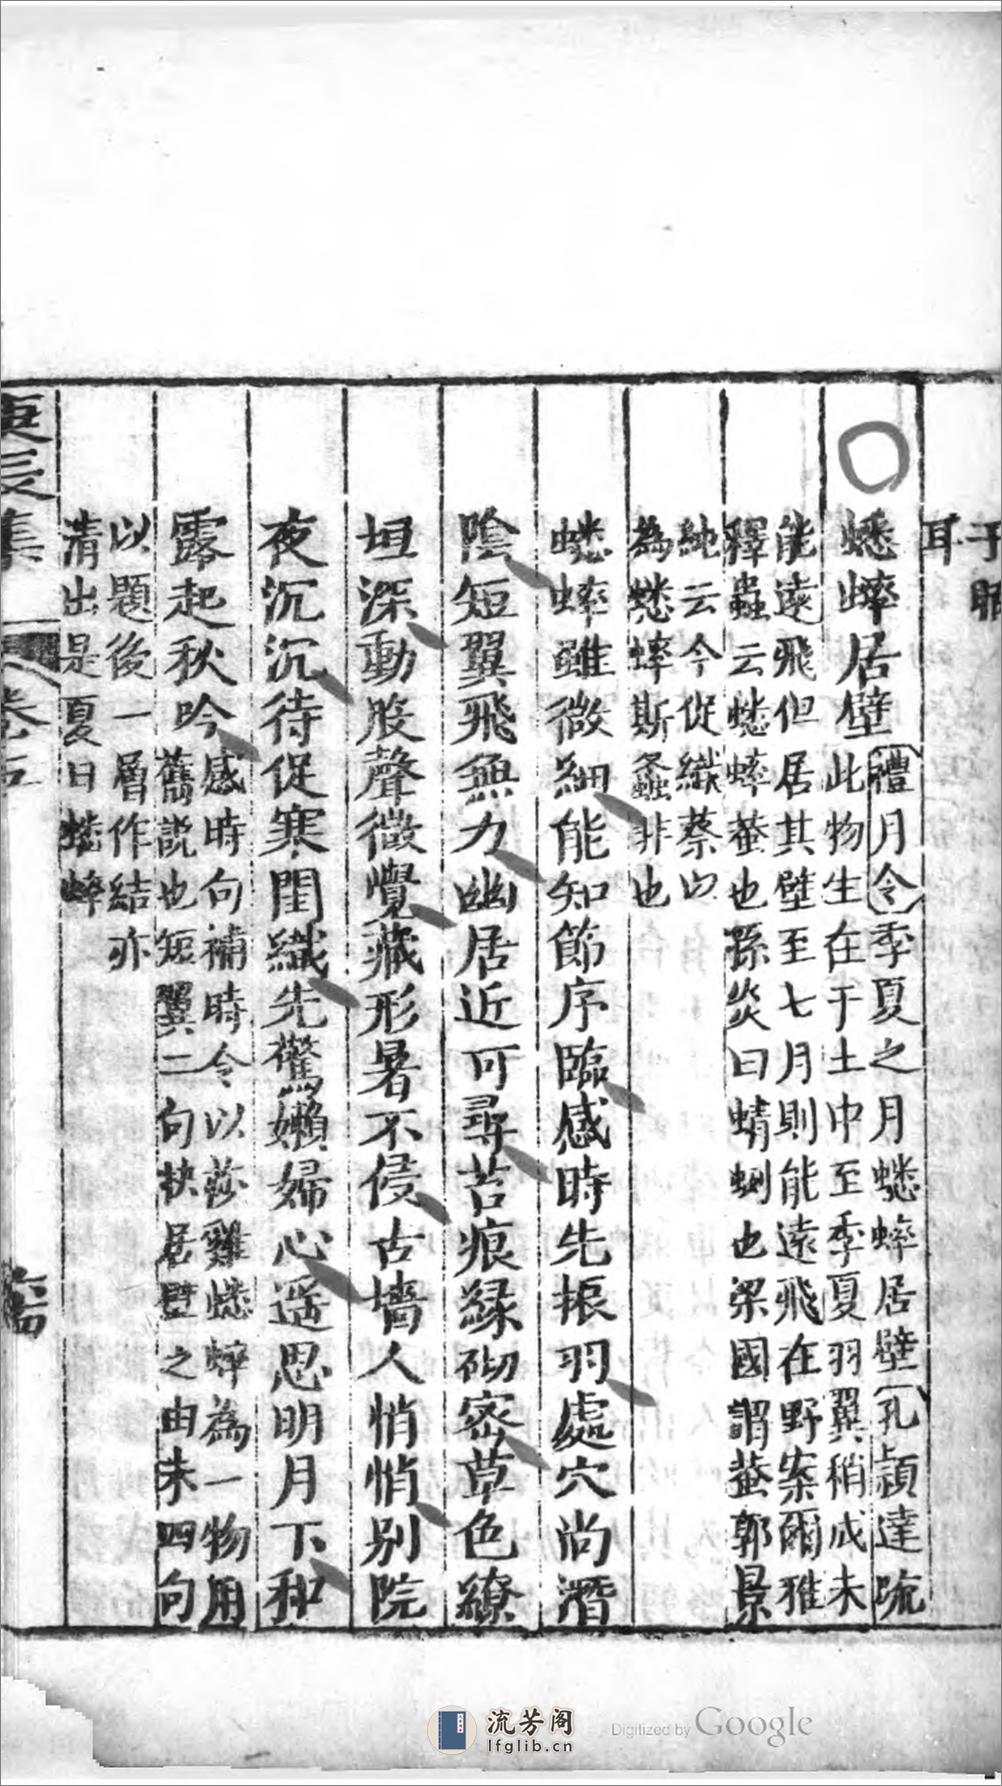 于
耳
蟋蟀居壁禮月令季夏之月蟋蟀居壁孔潁達疏
此物生在于土中至季夏羽翼稍成未
能遠飛但居其壁至七月則能遠飛在野案爾雅
釋蟲云蟋蟀蛬也孫炎曰蜻蛚也梁國謂蛬郭景
純云今促織蔡以
為蟋蟀斯螽非也
蟋蟀雖微細能知節序臨感時先振羽處穴尚潛
陰短翼飛無力幽居近可尋苔痕緑砌密草色繚
垣深動股聲微覺藏形暑不侵古墻人悄悄別院
夜沉沉待促寒閨織先驚嬾婦心遥思明月下和
露起秋吟感時句補時令以莎雞蟋蟀為一物用
舊説也短翼二句抉居壁之由末四句
以題後一層作結亦
清出是夏日蟋蟀
庚辰集
卷五
流芳阁
lfglib.cn
Digitized by Google